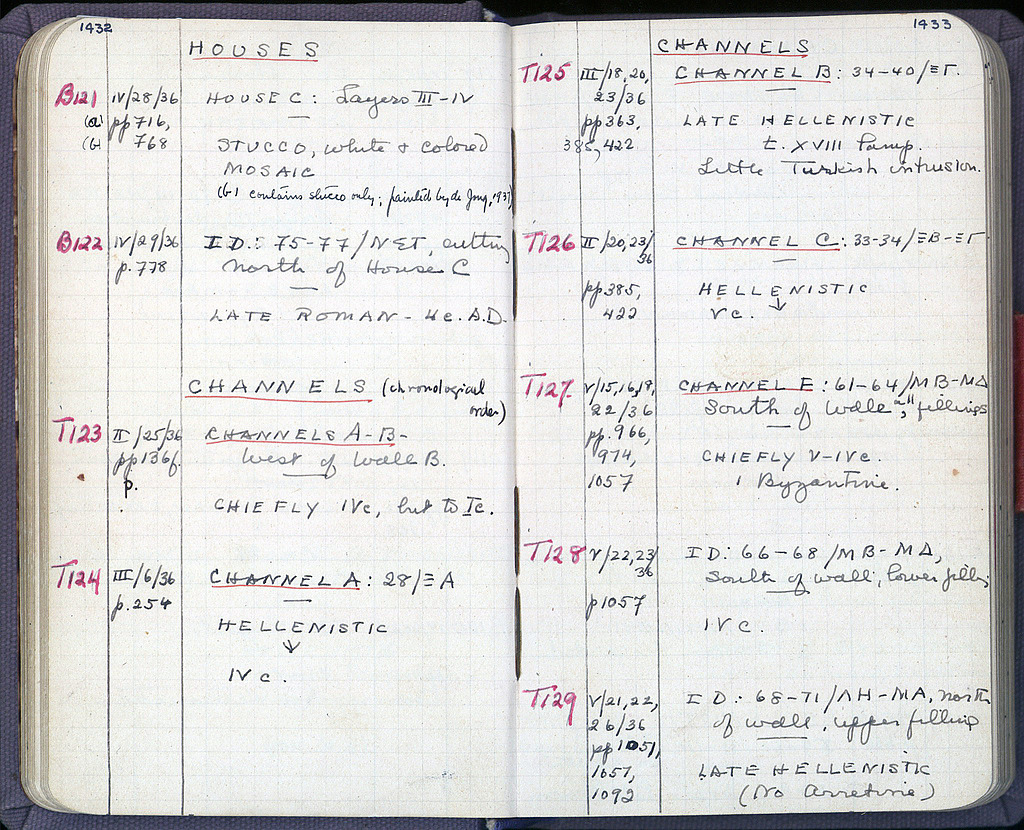 1432
HOUSES
B121 IV/28/36 HOUSE C: Layers III-IV
(a) pp 716,
(b) 768 STUCCO, white & colored
MOSAIC
(b1 contains stucco only; painted by de Jong, 1937)
B122 IV/29/36 ID.: 75-77/ΝΣΤ, cutting
p. 778 north of House C
LATE ROMAN - 4c. A.D.
CHANNELS (chronological
order)
T123 II/25/36 CHANNELS A-B-
pp 136f. West of Wall B.
p.
CHIEFLY IVc, but to Ic.
T124 III/6/36 CHANNEL A: 28/ΞΑ
p. 254
HELLENISTIC
↓
IVc.
1433
CHANNELS
T125 III/18, 20, CHANNEL B: 34-40/ΞΓ.
23/36
pp 363, LATE HELLENISTIC
385, 422 t. XVIII Lamp.
Little Turkish intrusion.
T126 II/20, 23/ CHANNEL C: 33-34/ΞΒ-ΞΓ
36
pp 385, HELLENISTIC
422 Vc. ↓
T127 V/15,16,18, CHANNEL E: 61-64/ΜΒ-ΜΔ
22/36 South of wall "a", fillings
pp. 966,
974, CHIEFLY V-IVc.
1057 1 Byzantine.
T128 V/22,23/ ID: 66-68/ΜΒ-ΜΔ,
36 South of wall, lower filling
p 1057
IVc.
T129 V/21,22, ID: 68-71/ΛΗ-ΜΑ, north
26/36 of wall, upper filling
pp 1051,
1057, LATE HELLENISTIC
1092 (No Arretine)